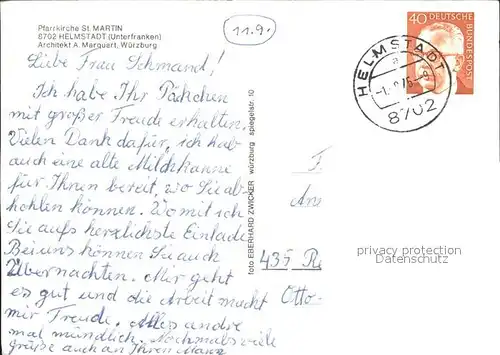 Pfarrkirche St. MARTIN
8702 HELMSTADT (Unterfranken)
Architekt A. Marquart, Würzburg
11.9.
40 DEUTSCHE BUNDESPOST
HELMSTADT
a
8702
Liebe Frau Schmand!
Ich habe Ihr Päckchen
mit großer Freude erhalten.
Vielen Dank dafür, ich hab
auch eine alte Milchkanne
für Ihnen bereit, wo Sie ab
hohlen können. Womit ich
Sie aufs herzlichste Einlade
Bei uns können Sie auch
Übernachten. Mir geht
es gut und die Arbeit macht
mir Freude. Alles andre
mal mündlich. Nochmals viele
grüße auch an Ihren Mann
foto EBERHARD ZWICKER würzburg spiegelstr. 10
F.
An
435 R
Otto-
privacy protection
Datenschutz